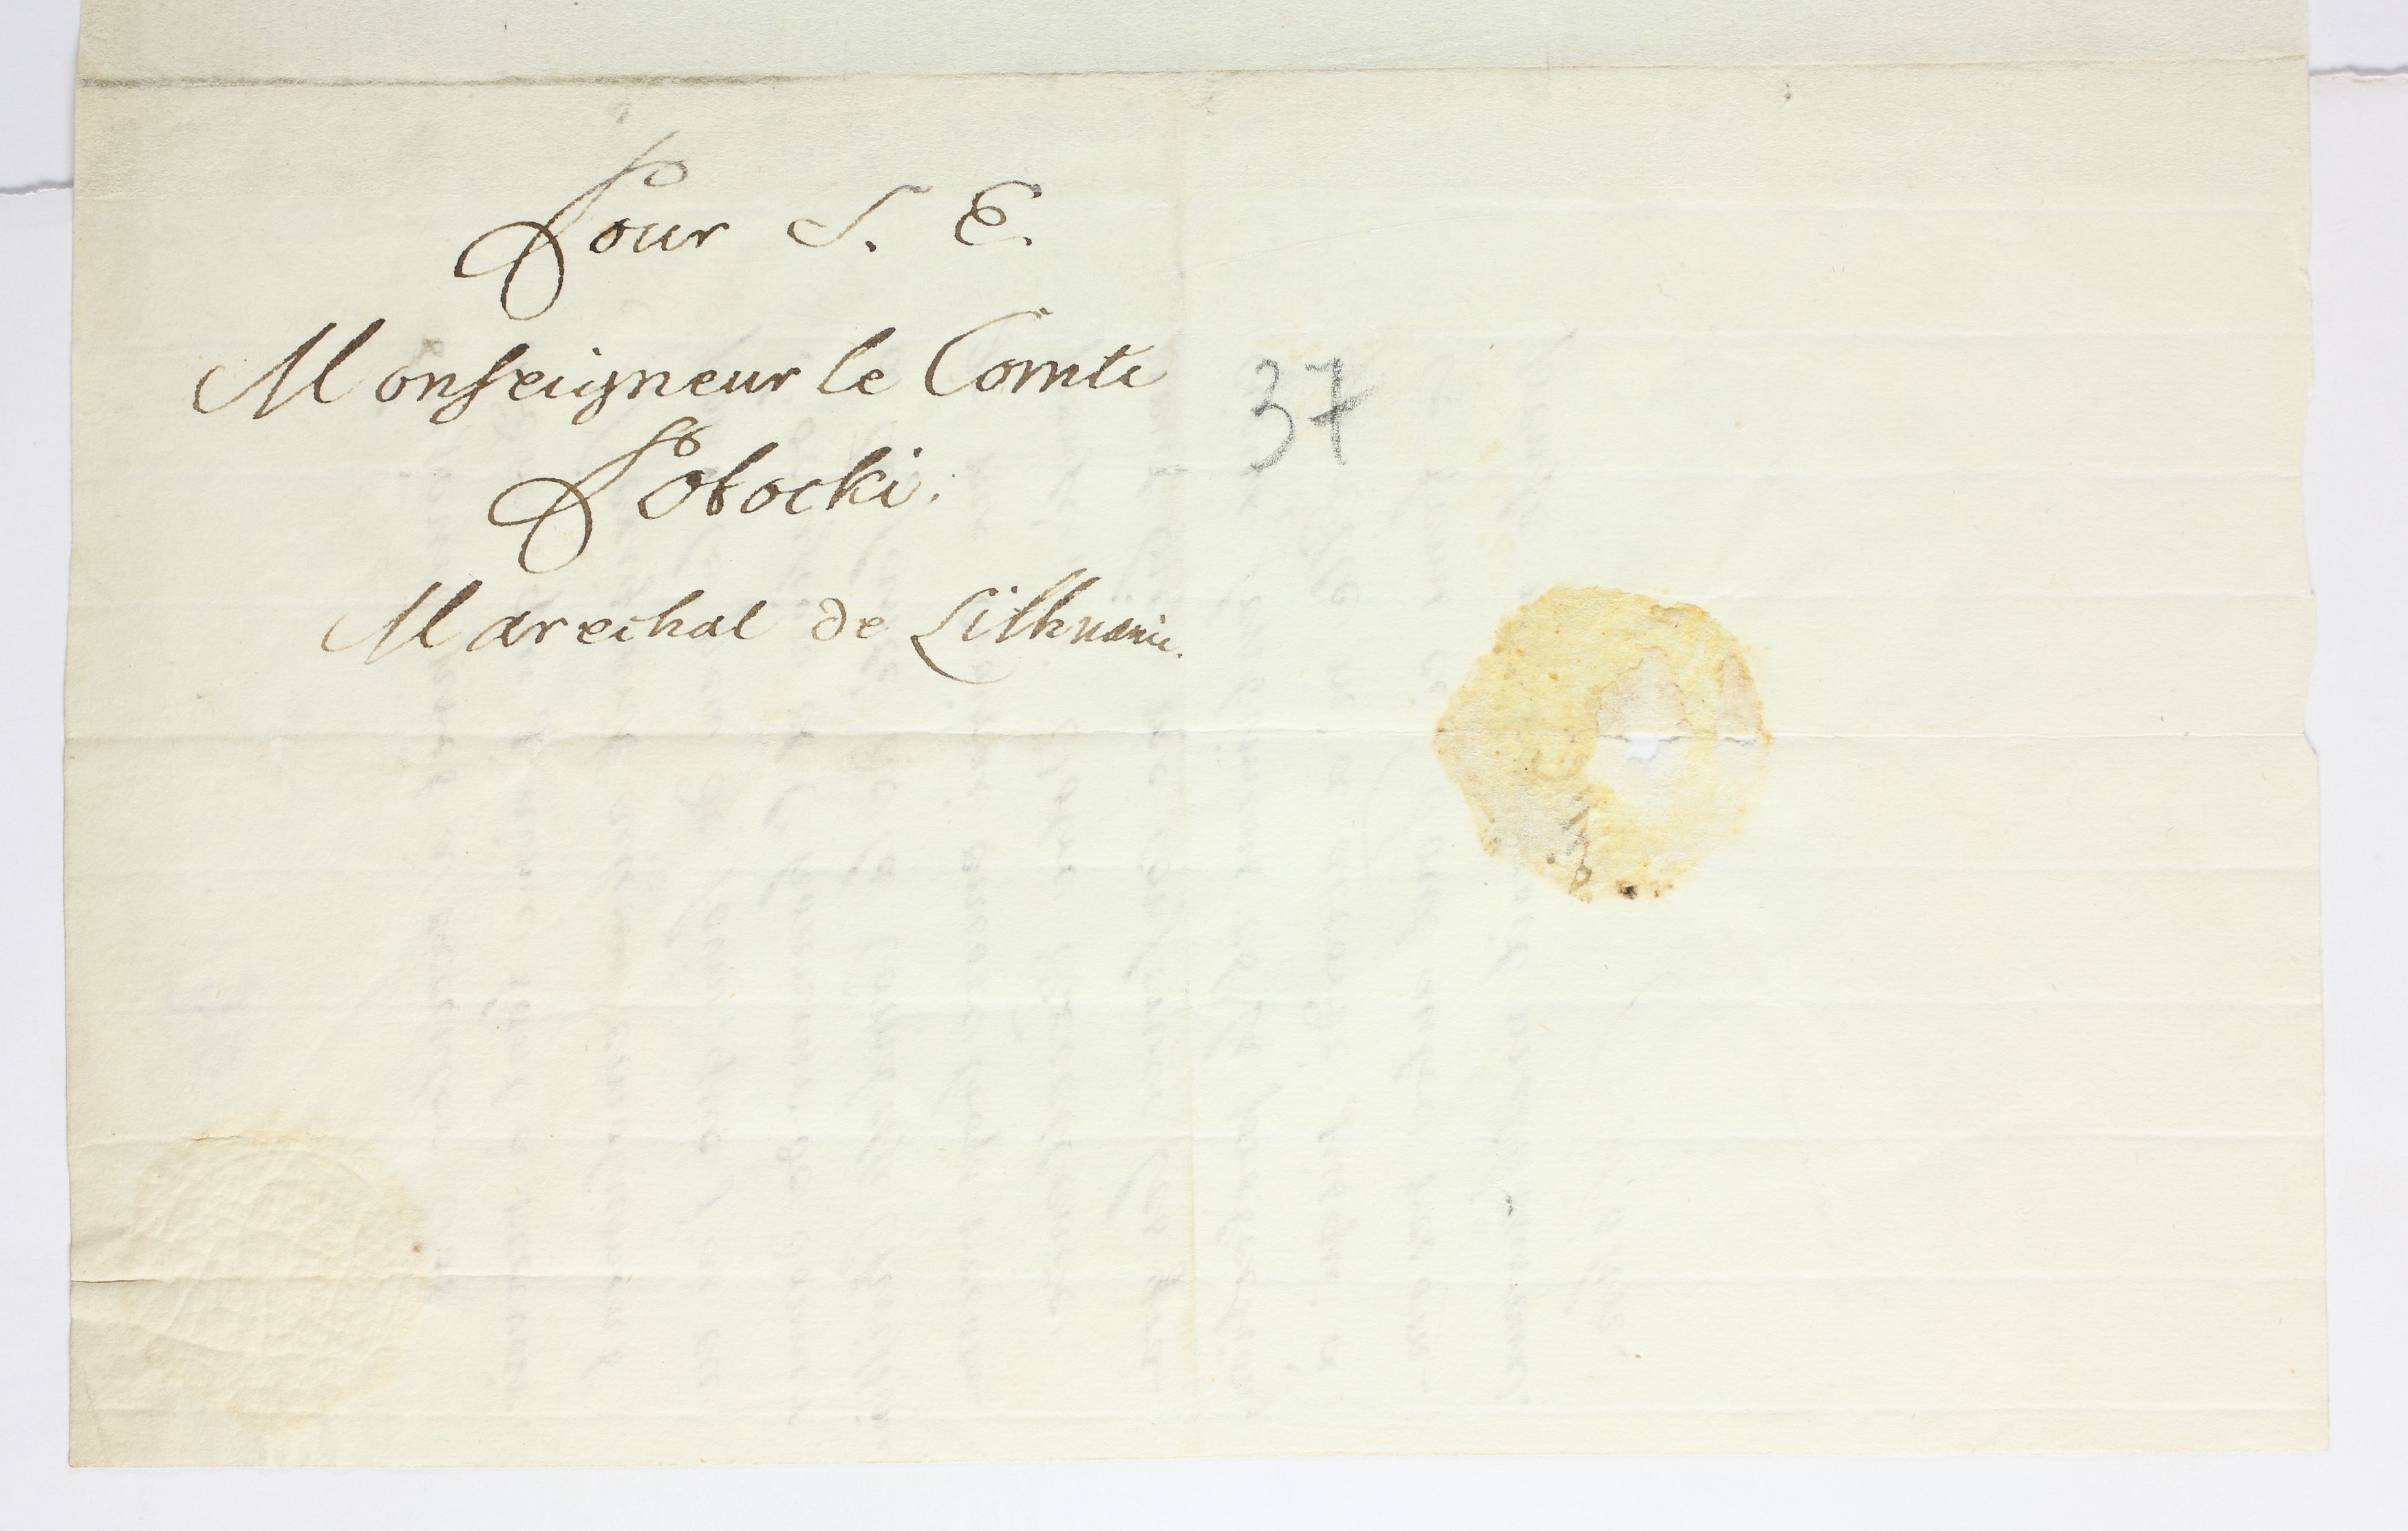 Pour S. E.
Monseigneur le Comte
37
Potocki.
Marechal de Lithuanie.